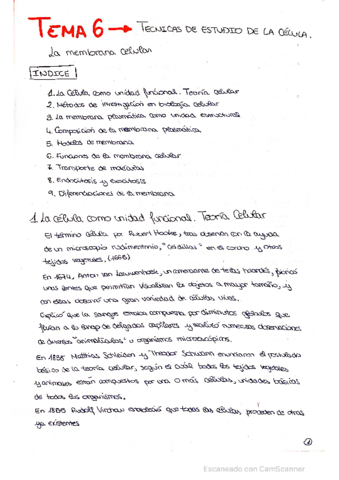 TEMA 6 → TECNICAS DE ESTUDIO DE LA CÉLULA.
La membrana celular
INDICE
1. La Célula como unidad funcional. Teoría celular
2. Métodos de investigación en biología celular
3. La membrana plasmática como unidad estructural
4. Composición de la membrana plasmática
5. Modelos de membrana
6. Funciones de la membrana celular
7. Transporte de moléculas
8. Endocitosis y exocitosis
9. Diferenciaciones de la membrana
1. La célula como unidad funcional. Teoría Celular
El término célula por Robert Hooke, tras observar con la ayuda
de un microscopio rudimentario, "celdillas" en el corcho y otros
tejidos vegetales. (1665)
En 1674, Anton van Leeuwenhoek, un comerciante de telas holandés, fabricó
unas lentes que permitían visualizar los objetos a mayor tamaño, y
con esas observó una gran variedad de células vivas.
Explicó que la sangre estaba compuesta por diminutos glóbulos que
fluían a lo largo de delgados capilares y realizó numerosas observaciones
de diversos "animálculos" u organismos microscópicos.
En 1838 Matthias Schleiden y Theodor Schwann enunciaron el postulado
básico de la teoría celular, según el cual todos los tejidos vegetales
y animales están compuestos por una o más células, unidades básicas
de todos los organismos.
En 1855 Rudolf Virchow estableció que todas las células, proceden de otras
ya existentes
1
Escaneado con CamScanner